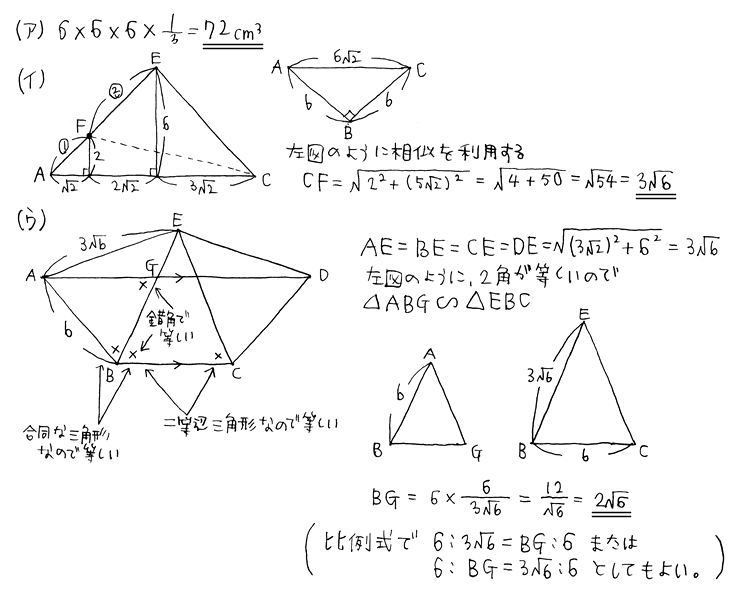 (ア) 6×6×6×1/3=72cm³
(イ)
E
②
F
①
2
6
A
√2
2√2
3√2
C
A
6√2
C
6
6
B
左図のように相似を利用する
CF=√(2²+(5√2)²)=√(4+50)=√54=3√6
(ウ)
3√6
E
A
G
D
×
6
錯角で
等しい
×
×
×
B
C
合同な三角形
なので等しい
二等辺三角形なので等しい
AE=BE=CE=DE=√((3√2)²+6²)=3√6
左図のように、2角が等しいので
△ABG∽△EBC
A
6
B
G
E
3√6
B
6
C
BG=6×6/3√6=12/√6=2√6
(比例式で 6:3√6=BG:6 または
6:BG=3√6:6 としてもよい。)